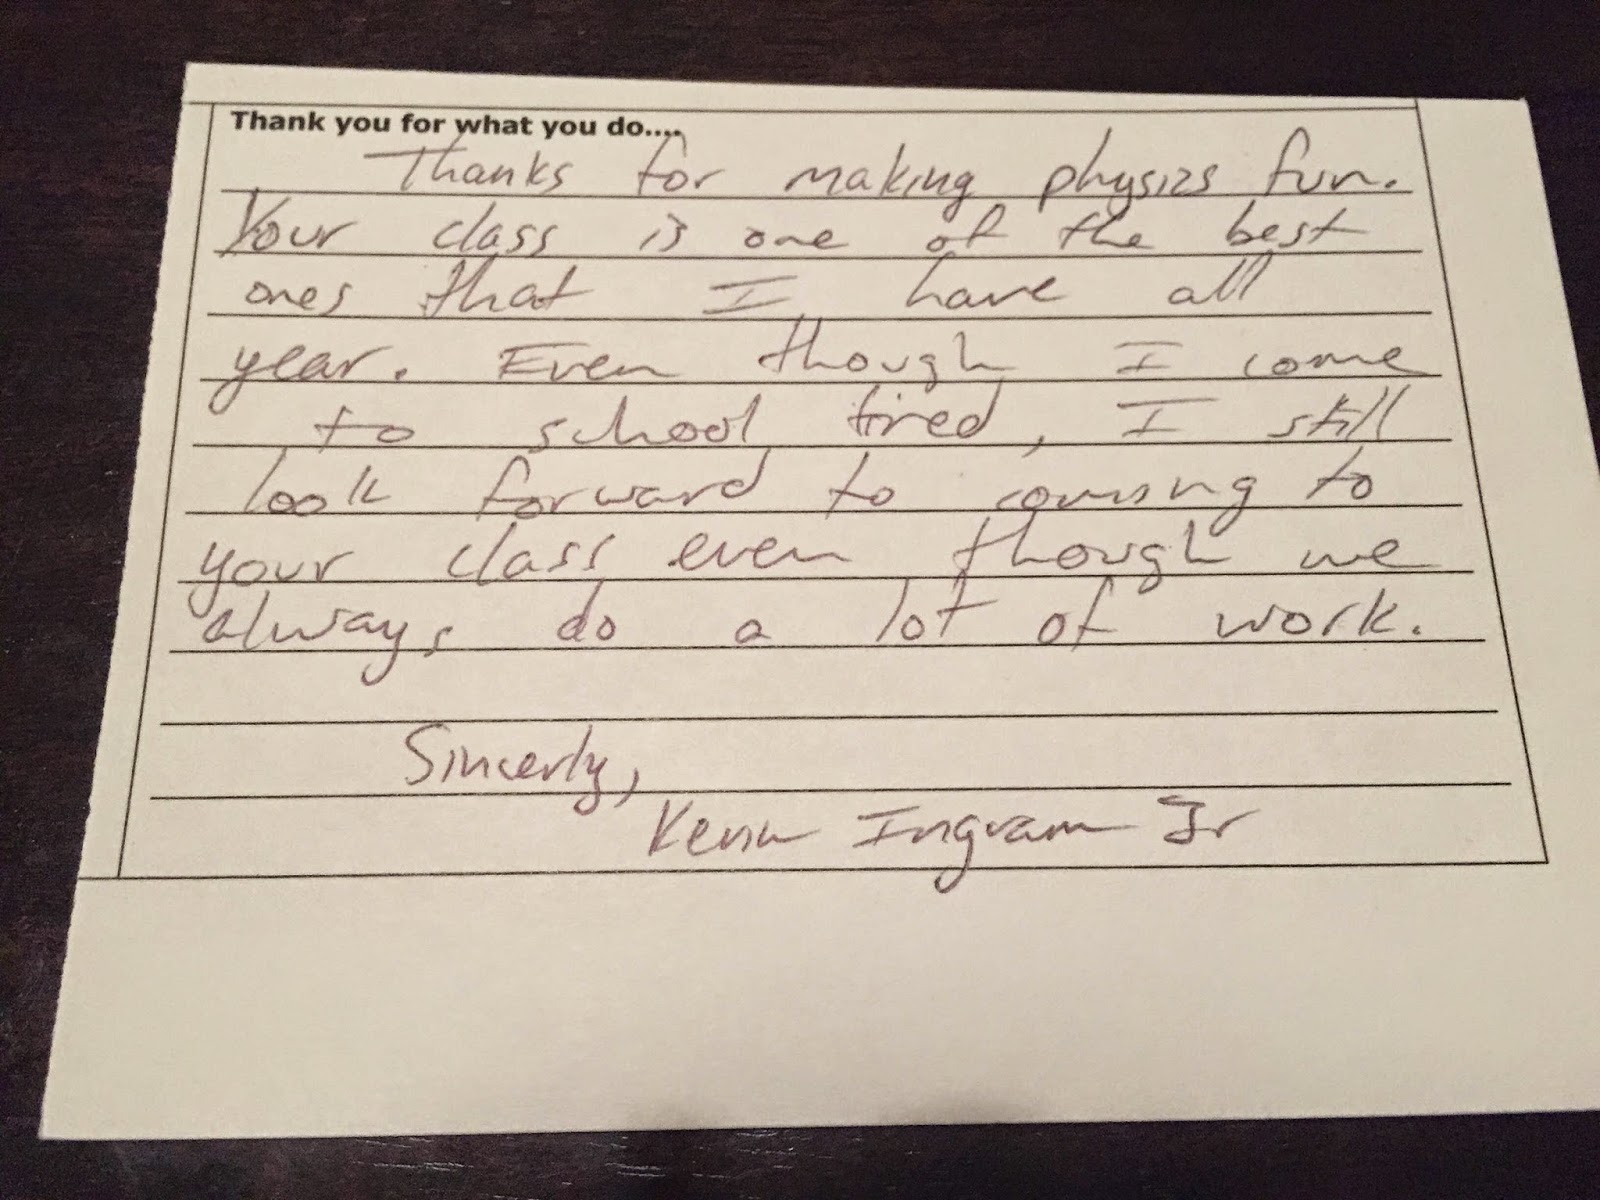 Thank you for what you do....
Thanks for making physics fun.
Your class is one of the best
ones that I have all
year. Even though I come
to school tired, I still
look forward to coming to
your class even though we
always do a lot of work.
Sincerly,
Kevin Ingram Jr